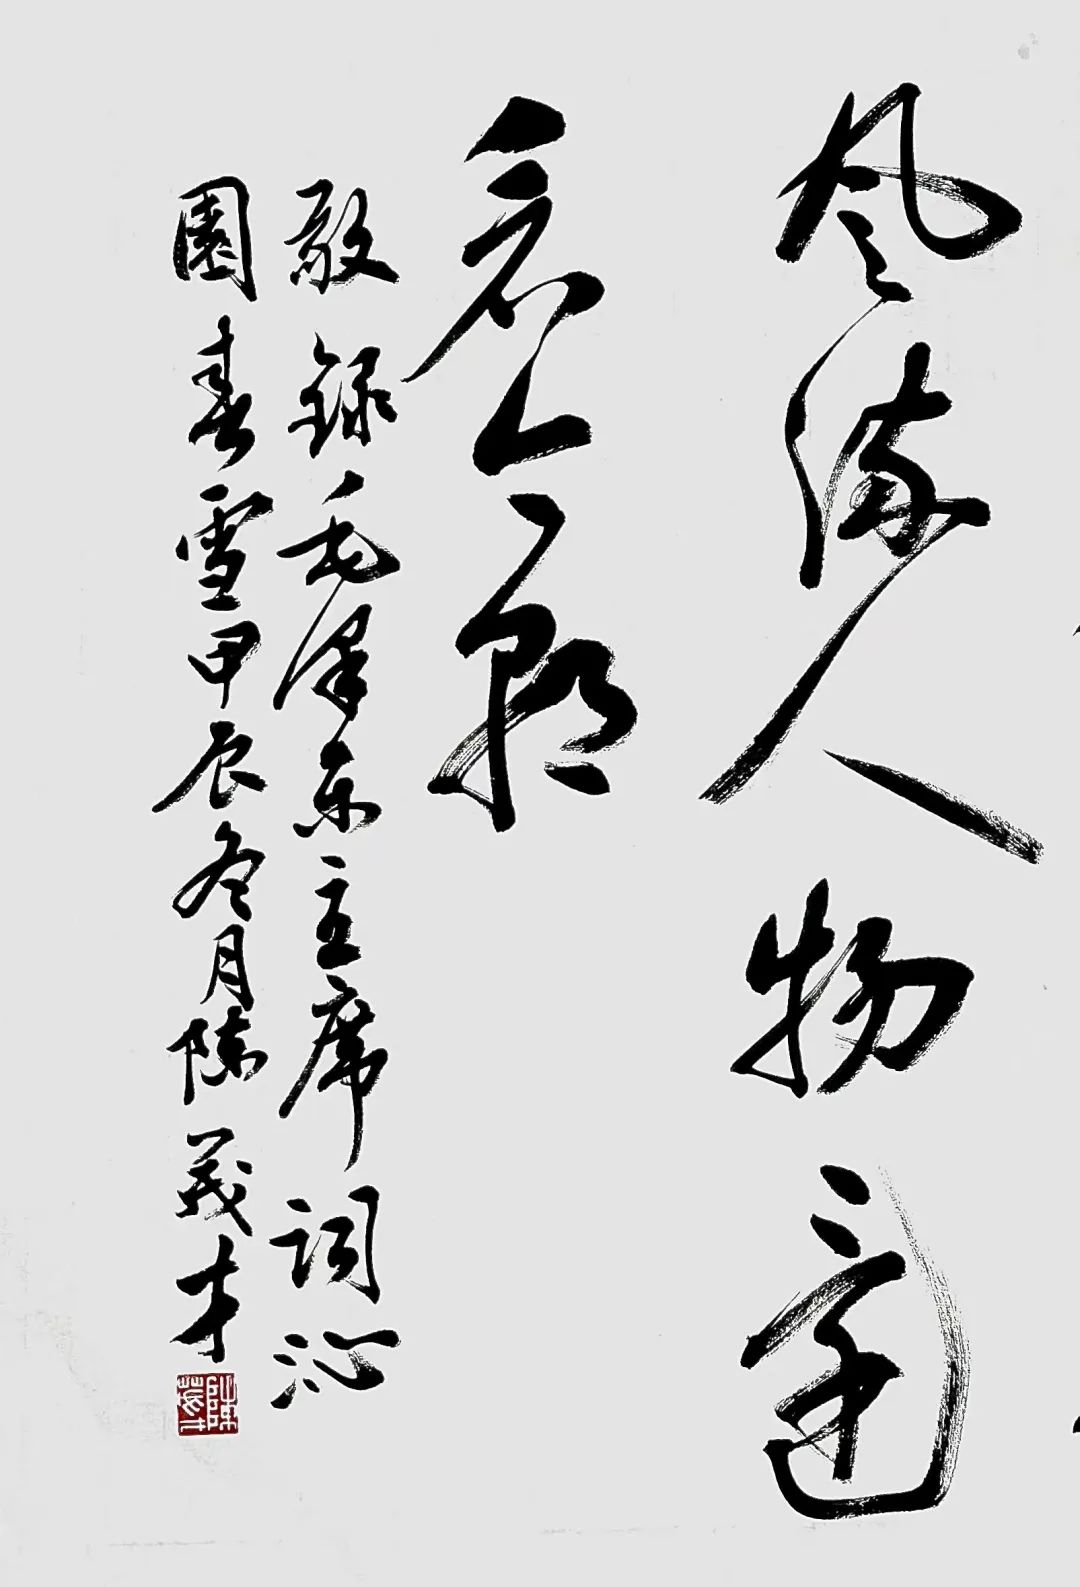 风流人物還
看今朝
敬録毛澤东主席词沁
園春雪甲辰冬月陈茂才